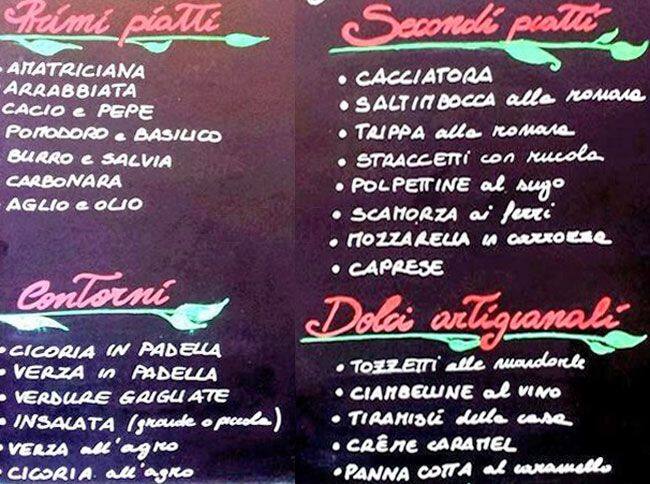 Primi piatti
• AMATRICIANA
• ARRABBIATA
CACIO e PEPE
• POMODORO e BASILICO
• BURRO e SALVIA
CARBONARA
• AGLIO e OLIO
Contorni
• CICORIA IN PADELLA
• VERZA in PADELLA
• VERDURE GRIGLIATE
• INSALATA (grande o piccola)
• VERZA all'agro
• CICORIA all'agro
Secondi piatti
• CACCIATORA
• SALTIMBOCCA alla romana
• TRIPPA alla romana
• STRACCETTI con rucola
• POLPETTINE al sugo
• SCAMORZA ai ferri
• MOZZARELLA in carrozza
• CAPRESE
Dolci artigianali
• TOZZETTI alle mandorle
• CIAMBELLINE al VINO
• TIRAMISÙ della casa
• CRÊME CARAMEL
• PANNA COTTA al caramello